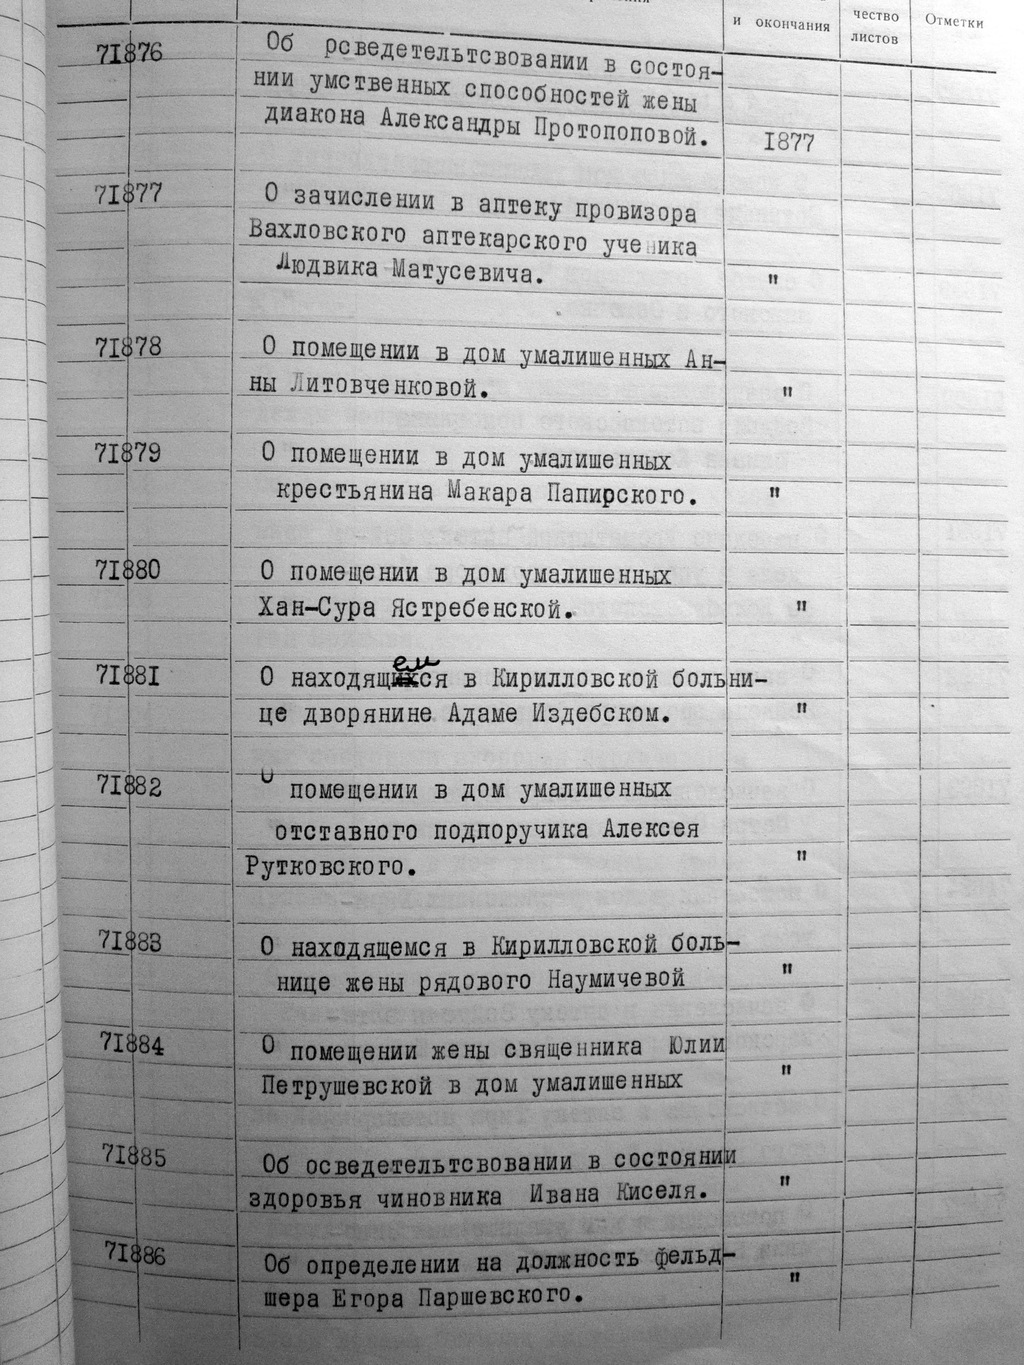 и окончания
чество
листов
Отметки
71876 Об рсведетельтсвовании в состоя-
нии умственных способностей жены
диакона Александры Протопоповой. 1877
71877 О зачислении в аптеку провизора
Вахловского аптекарского ученика
Людвика Матусевича. "
71878 О помещении в дом умалишенных Ан-
ны Литовченковой. "
71879 О помещении в дом умалишенных
крестьянина Макара Папирского. "
71880 О помещении в дом умалишенных
Хан-Сура Ястребенской. "
71881 О находящемся в Кирилловской больни-
це дворянине Адаме Издебском. "
71882 О помещении в дом умалишенных
отставного подпоручика Алексея
Рутковского. "
71883 О находящемся в Кирилловской боль-
нице жены рядового Наумичевой "
71884 О помещении жены священника Юлии
Петрушевской в дом умалишенных "
71885 Об осведетельтсвовании в состоянии
здоровья чиновника Ивана Киселя. "
71886 Об определении на должность фельд-
шера Егора Паршевского. "